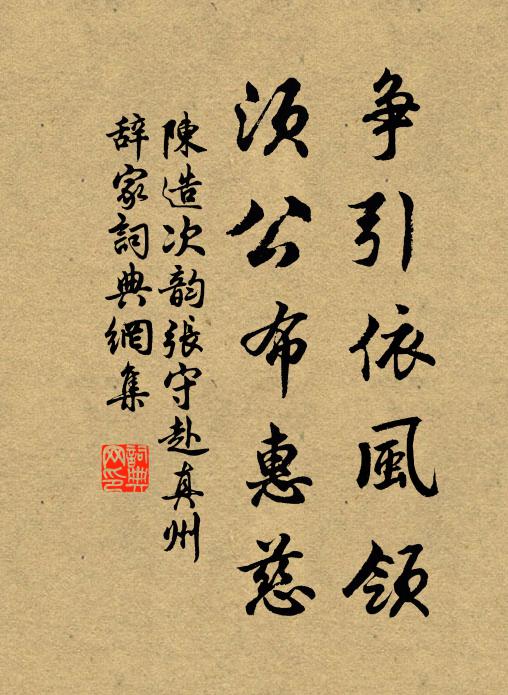 争引依風領
須公布惠慈
陳造次韵張守赴真州
辞家詞典網集
詞典网印